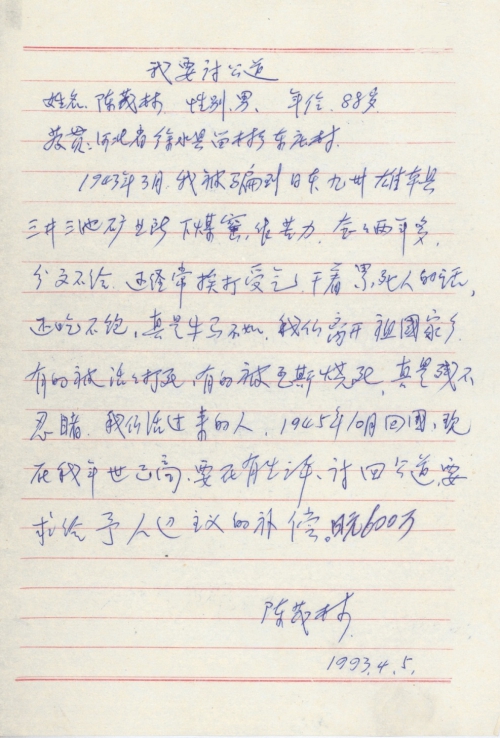 我要讨公道
姓名. 陈茂林 性别.男、 年令. 88岁
籍贯：河北省徐水县 村乡东庄村.
1943年3月.我被骗到日本.九州 熊本县
三井三池矿业所 下煤窑.作苦力.
分文不给.还经常挨打受气,干着累死人的活,
还吃不饱,真是牛马不如.我们离开祖國家乡.
有的被活活打死,有的被瓦斯烧死.真是残不
忍睹.我们活过来的人.1945年10月回國,现
在我年世已高.要在有生 .讨回公道.要
求给予人道主义的补偿。日元600万
陈茂林.
1993.4.5.